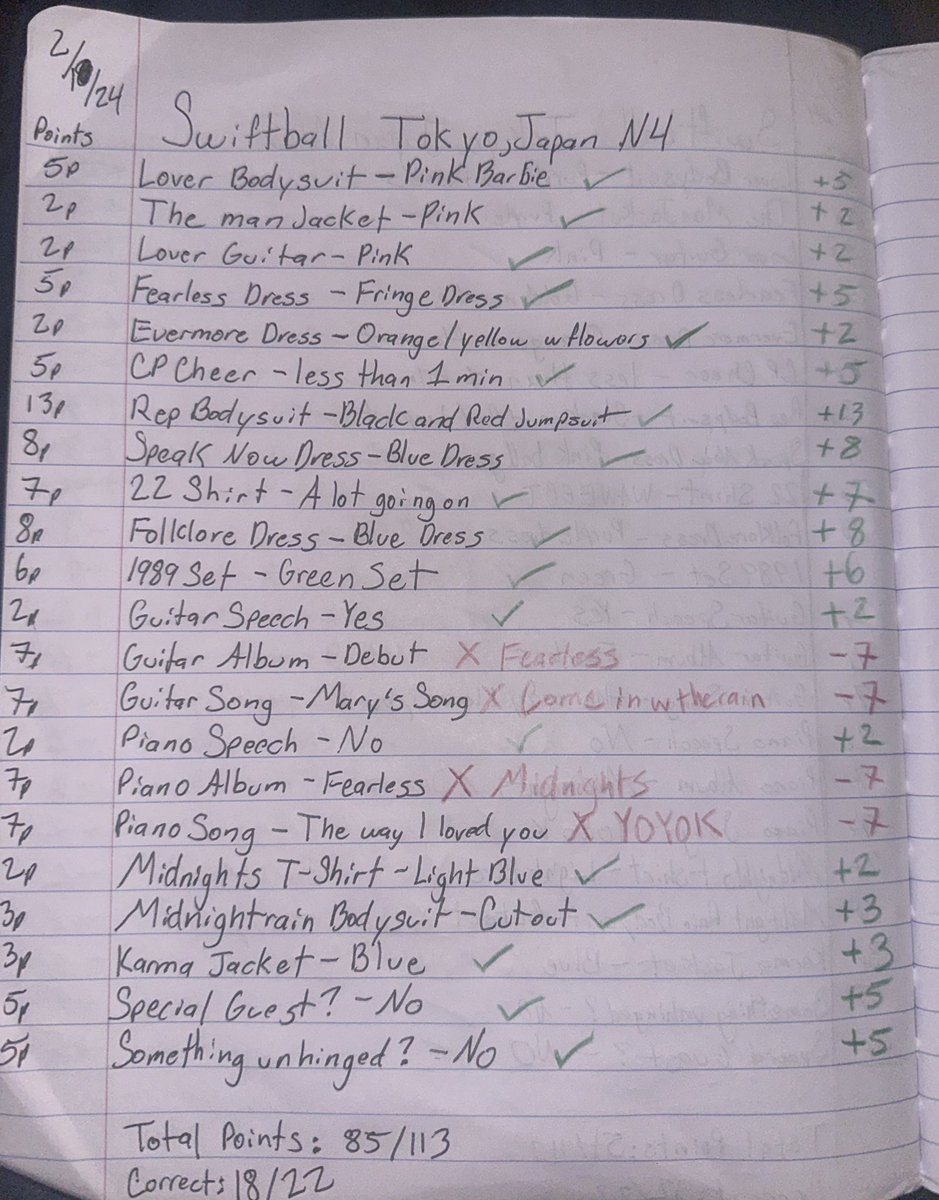 2/10/24
Points Swiftball Tokyo, Japan N4
5p Lover Bodysuit - Pink Barbie ✓ +5
2p The man Jacket - Pink ✓ +2
2p Lover Guitar - Pink ✓ +2
5p Fearless Dress - Fringe Dress ✓ +5
2p Evermore Dress - Orange/yellow w flowers ✓ +2
5p CP Cheer - less than 1 min ✓ +5
13p Rep Bodysuit - Black and Red Jumpsuit ✓ +13
8p Speak Now Dress - Blue Dress ✓ +8
7p 22 Shirt - A lot going on ✓ +7
8p Folklore Dress - Blue Dress ✓ +8
6p 1989 Set - Green Set ✓ +6
2p Guitar Speech - Yes ✓ +2
7p Guitar Album - Debut X Fearless -7
7p Guitar Song - Mary's Song X Come in w the rain -7
2p Piano Speech - No ✓ +2
7p Piano Album - Fearless X Midnights -7
7p Piano Song - The way I loved you X YOYOK -7
2p Midnights T-Shirt - Light Blue ✓ +2
3p Midnightrain Bodysuit - Cutout ✓ +3
3p Karma Jacket - Blue ✓ +3
5p Special Guest? - No ✓ +5
5p Something unhinged? - No ✓ +5
Total Points: 85/113
Corrects 18/22